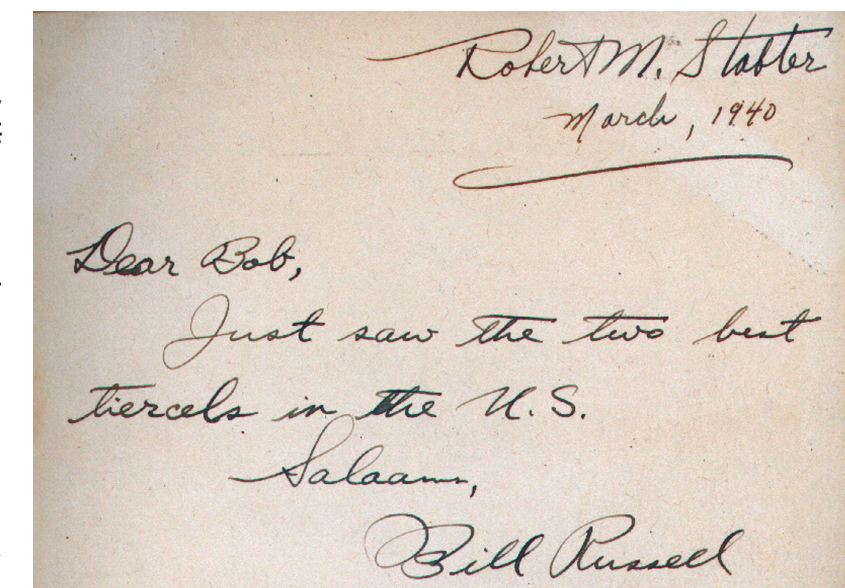 Robert M. Stabler
March, 1940
Dear Bob,
Just saw the two best
tiercels in the U.S.
Salaams,
Bill Russell